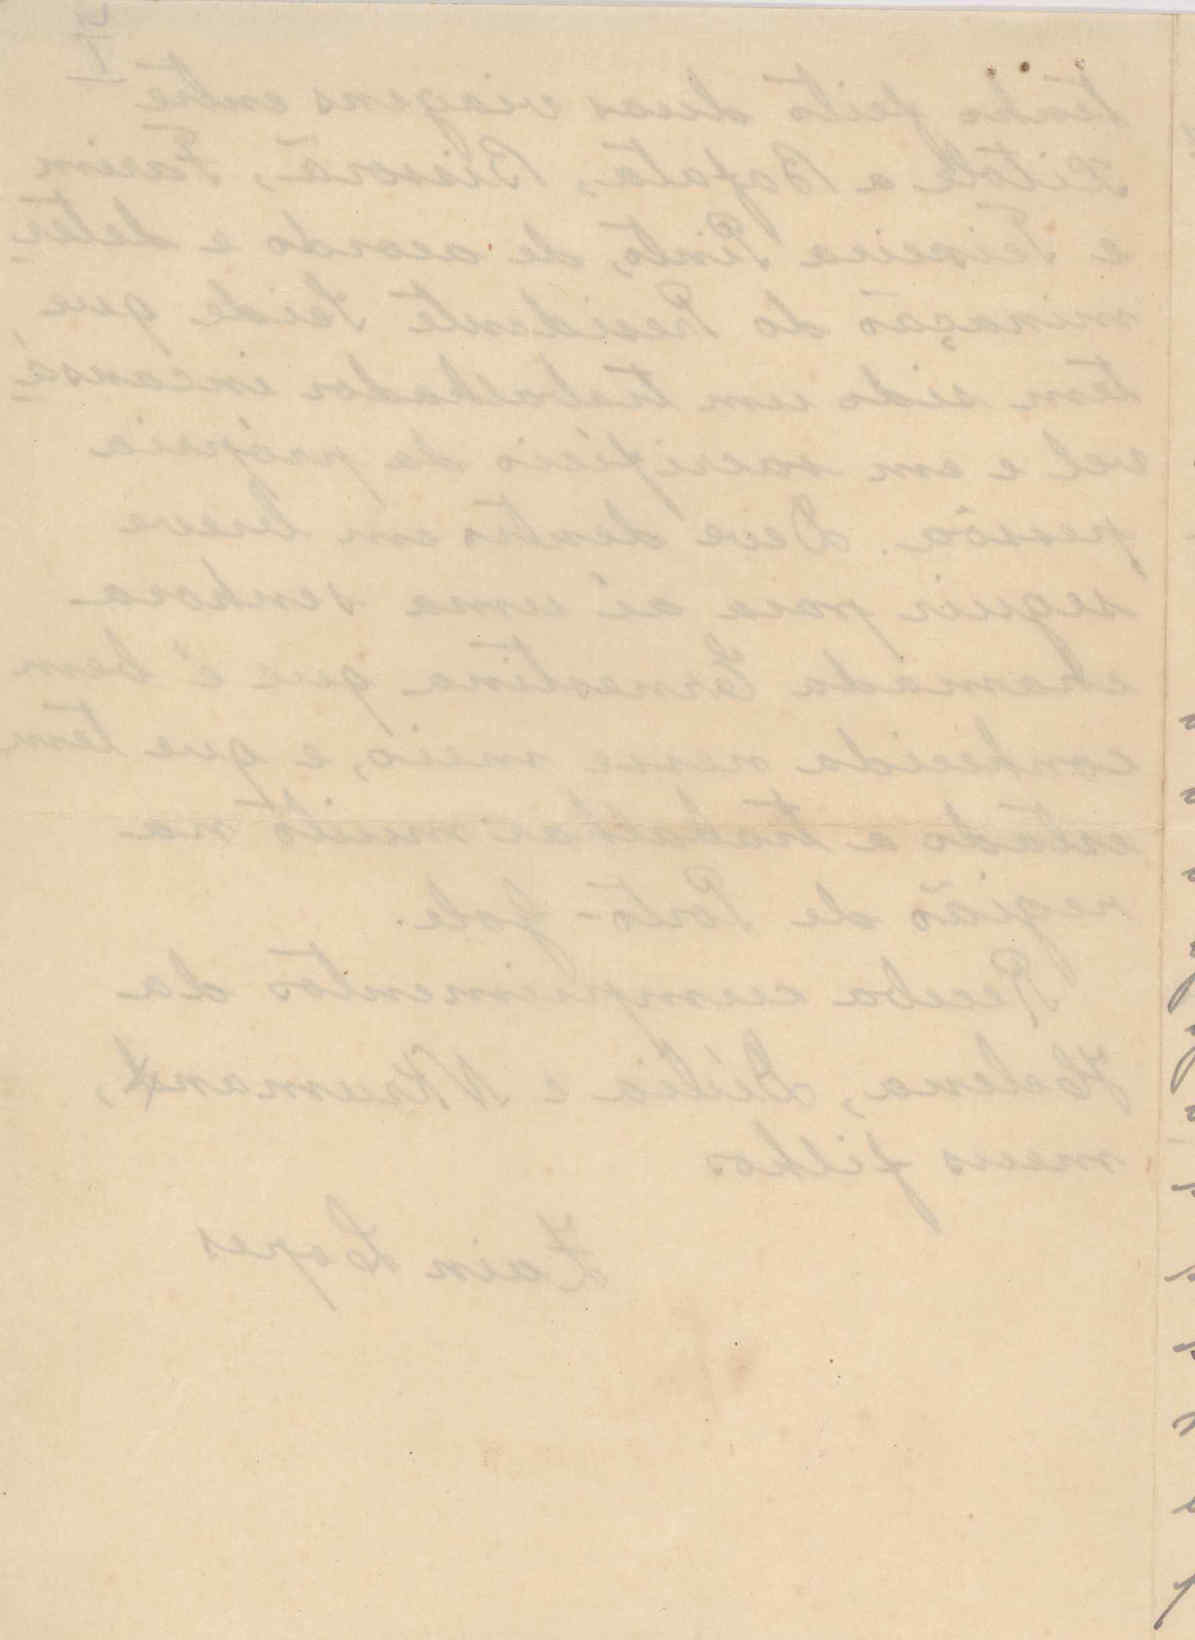 tenho feito duas viagens entre
Xitole a Bafatá, Bissorã, Farim
e Teixeira Pinto, de acordo e deter
minação do Presidente Seide que
tem sido um trabalhador incansá
vel e em sacrifício da própria
pessôa. Deve dentro em breve
seguir para aí uma senhora
chamada Ernestina que é bem
conhecida nesse meio, e que tem
estado a trabalhar muito na
região de Porto-Gole.
Receba cumprimentos da
Helena, Lídia e NKrumanh,
meus filhos
Zain Lopes